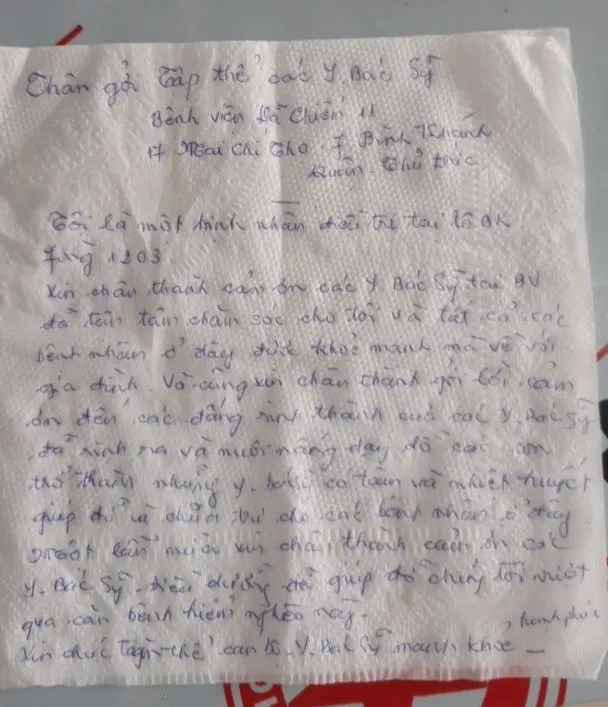 Chân gởi Tập thể các Y. Bác Sỹ
Bệnh viện Dã Chiến 11
17 Mai Chí Thọ. F Bình Khánh
Quận. Thủ Đức
Tôi là một bịnh nhân điều trị tại lô OK
Fng 1203.
Xin chân thành cảm ơn các Y. Bác Sỹ tại BV
đã tận tâm chăm sóc cho tôi và tất cả các
bệnh nhân ở đây được khoẻ mạnh mà về với
gia đình. Và cũng xin chân thành gởi lời cảm
ơn đến các đấng sinh thành của các Y. Bác Sỹ
đã sinh ra và nuôi nấng dạy dỗ các con
trở thành những y. bsỹ có tâm và nhiệt huyết
giúp đỡ và chữa trị cho các bệnh nhân ở đây
Một lần nữa xin chân thành cảm ơn các
Y. Bác Sỹ. điều dưỡng đã giúp đỡ chúng tôi vượt
qua căn bệnh hiểm nghèo này.
, hạnh phúc
Xin chúc tập thể can bộ. Y. Bác Sỹ mạnh khoẻ